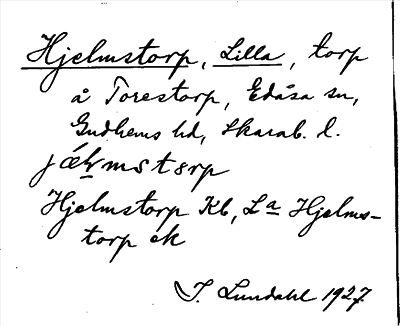 Hjelmstorp, Lilla, torp
å Torestorp, Edåsa sn,
Gudhems hd, Skarab. l.
Hjelmstorp Kb, La Hjelms-
torp ek
I. Lundahl 1927